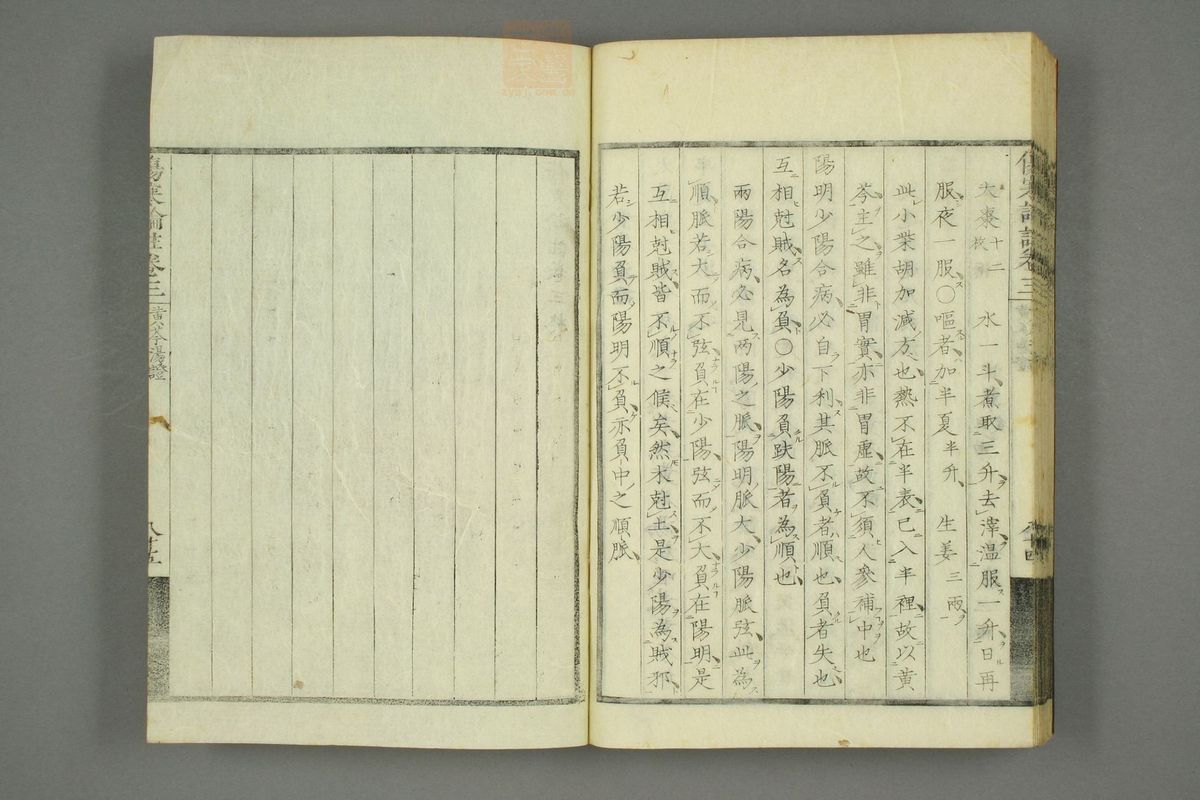 大棗十二枚　水一斗煮取三升去滓温服一升日再
服夜一服〇嘔者加半夏半升生姜三両
此小柴胡加減方也熱不在半表已入半裡故以黄
芩主之雖非胃實亦非胃虛故不須人參補中也
陽明少陽合病必自下利其脈不負者順也負者失也
互相尅賊名為負〇少陽負趺陽者為順也
兩陽合病必見两陽之脈陽明脈大少陽脈弦此為
順脈若大而不弦負在少陽弦而不大負在陽明是
互相尅賊皆不順之候矣然木尅土是少陽為賊邪
若少陽負而陽明不負亦負中之順脈
傷寒論註卷三 黄芩湯證
八十五